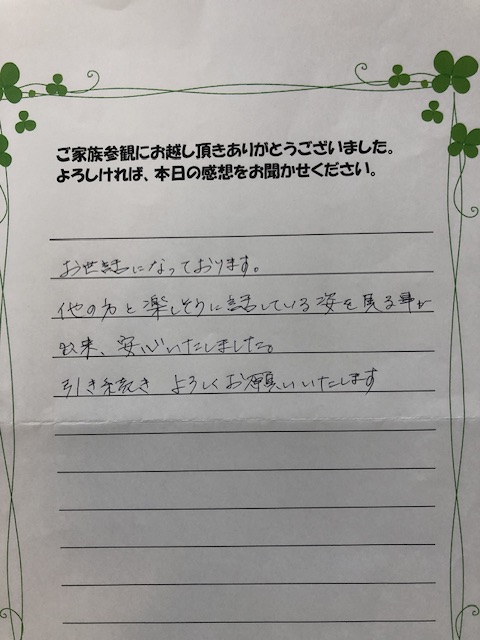 ご家族参観にお越し頂きありがとうございました。
よろしければ、本日の感想をお聞かせください。
お世話になっております。
他の方と楽しそうに話している姿を見る事が
出来、安心いたしました。
引き続き よろしくお願いいたします